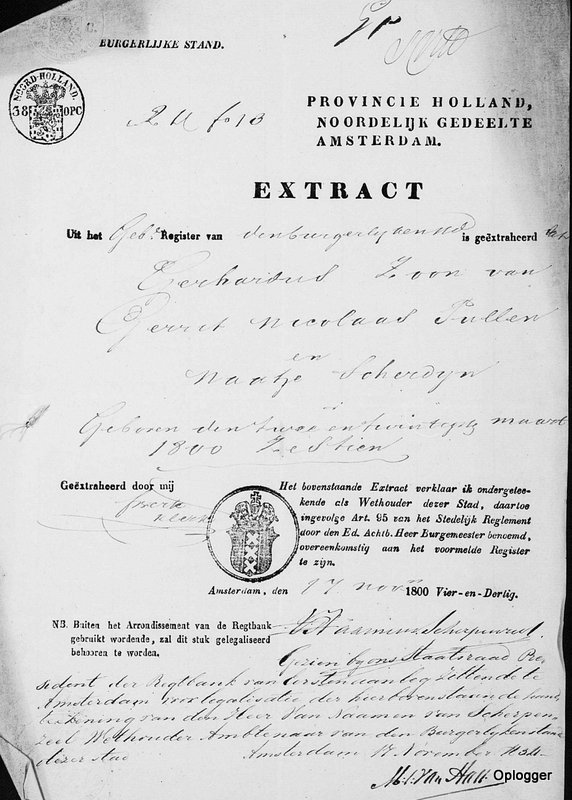 BURGERLIJKE STAND.
NOORD-HOLLAND.
38 OPC
PROVINCIE HOLLAND,
NOORDELIJK GEDEELTE
AMSTERDAM.
EXTRACT
Uit het Geb. Register van den burgerlyken is geëxtraheerd dat
Gerhardus Zoon van
Gerrit Nicolaas Pullen
en
Naatje Scherdyn
Geboren den twee en twintigste maart
1800 Zestien
Geëxtraheerd door mij
Het bovenstaande Extract verklaar ik ondergetee-
kende als Wethouder dezer Stad, daartoe
ingevolge Art. 95 van het Stedelijk Reglement
door den Ed. Achtb. Heer Burgemeester benoemd,
overeenkomstig aan het voormelde Register
te zijn.
Amsterdam, den 17 nov. 1800 Vier-en-Dertig.
NB. Buiten het Arrondissement van de Regtbank
gebruikt wordende, zal dit stuk gelegaliseerd
behooren te worden.
Gezien by ons Staatsraad Pre
sident der Regtbank van eersten aanleg zittende te
Amsterdam voor legalisatie der hierbovenstaande hand
tekening van den Heer Van Naamen van Scherpen
zeel Wethouder Ambtenaar van den Burgerlyken stand
dezer stad
Amsterdam 17 November 1834
M. C. Van Hall
Oplogger